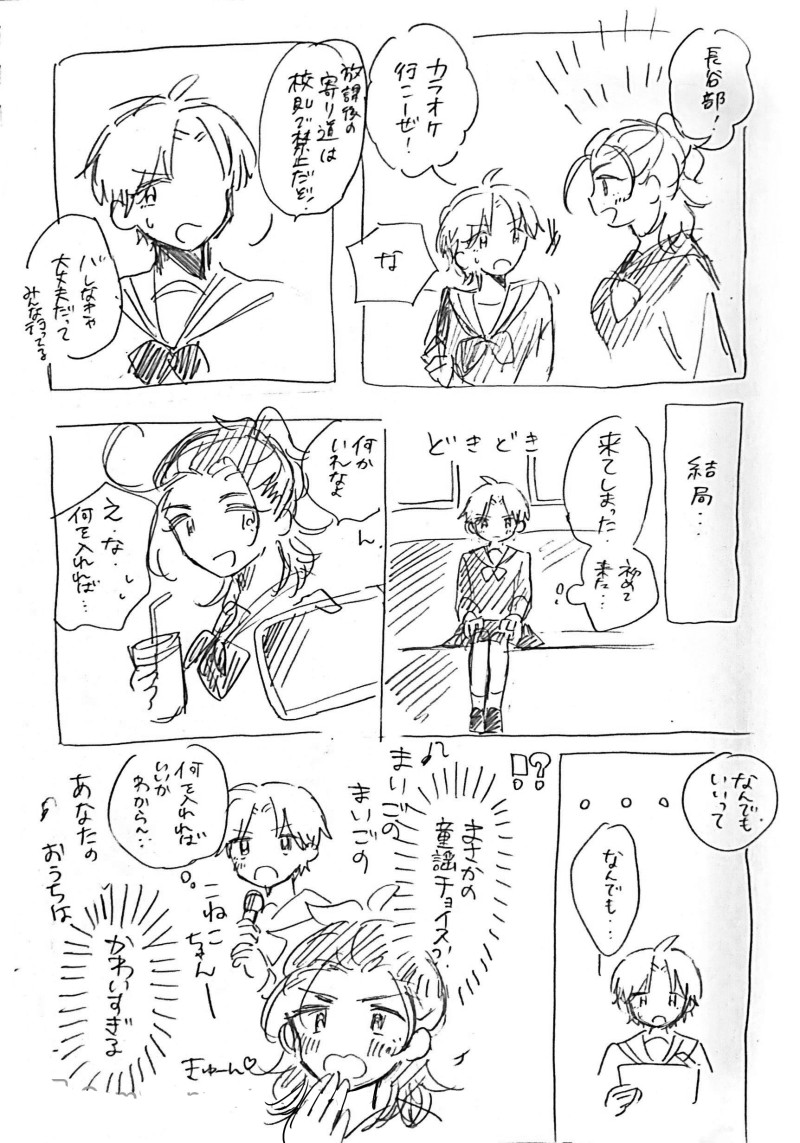 長谷部!
カラオケ
行こーぜ!
な
放課後の
寄り道は
校則で禁止だぞ!
バレなきゃ
大丈夫だって
みんな行ってる
結局…
来てしまった
初めて
来た…
どきどき
何か
いれなよ
ん
え…な…
何を入れれば…
なんでも
いいって
・・・
なんでも…
!?
まさかの
童謡チョイスっ!
まいごの
まいごの
こねこ
ちゃんー
何を入れれば
いいか
わからん…
あなたの
おうちは
かわいすぎる
きゅーん♡